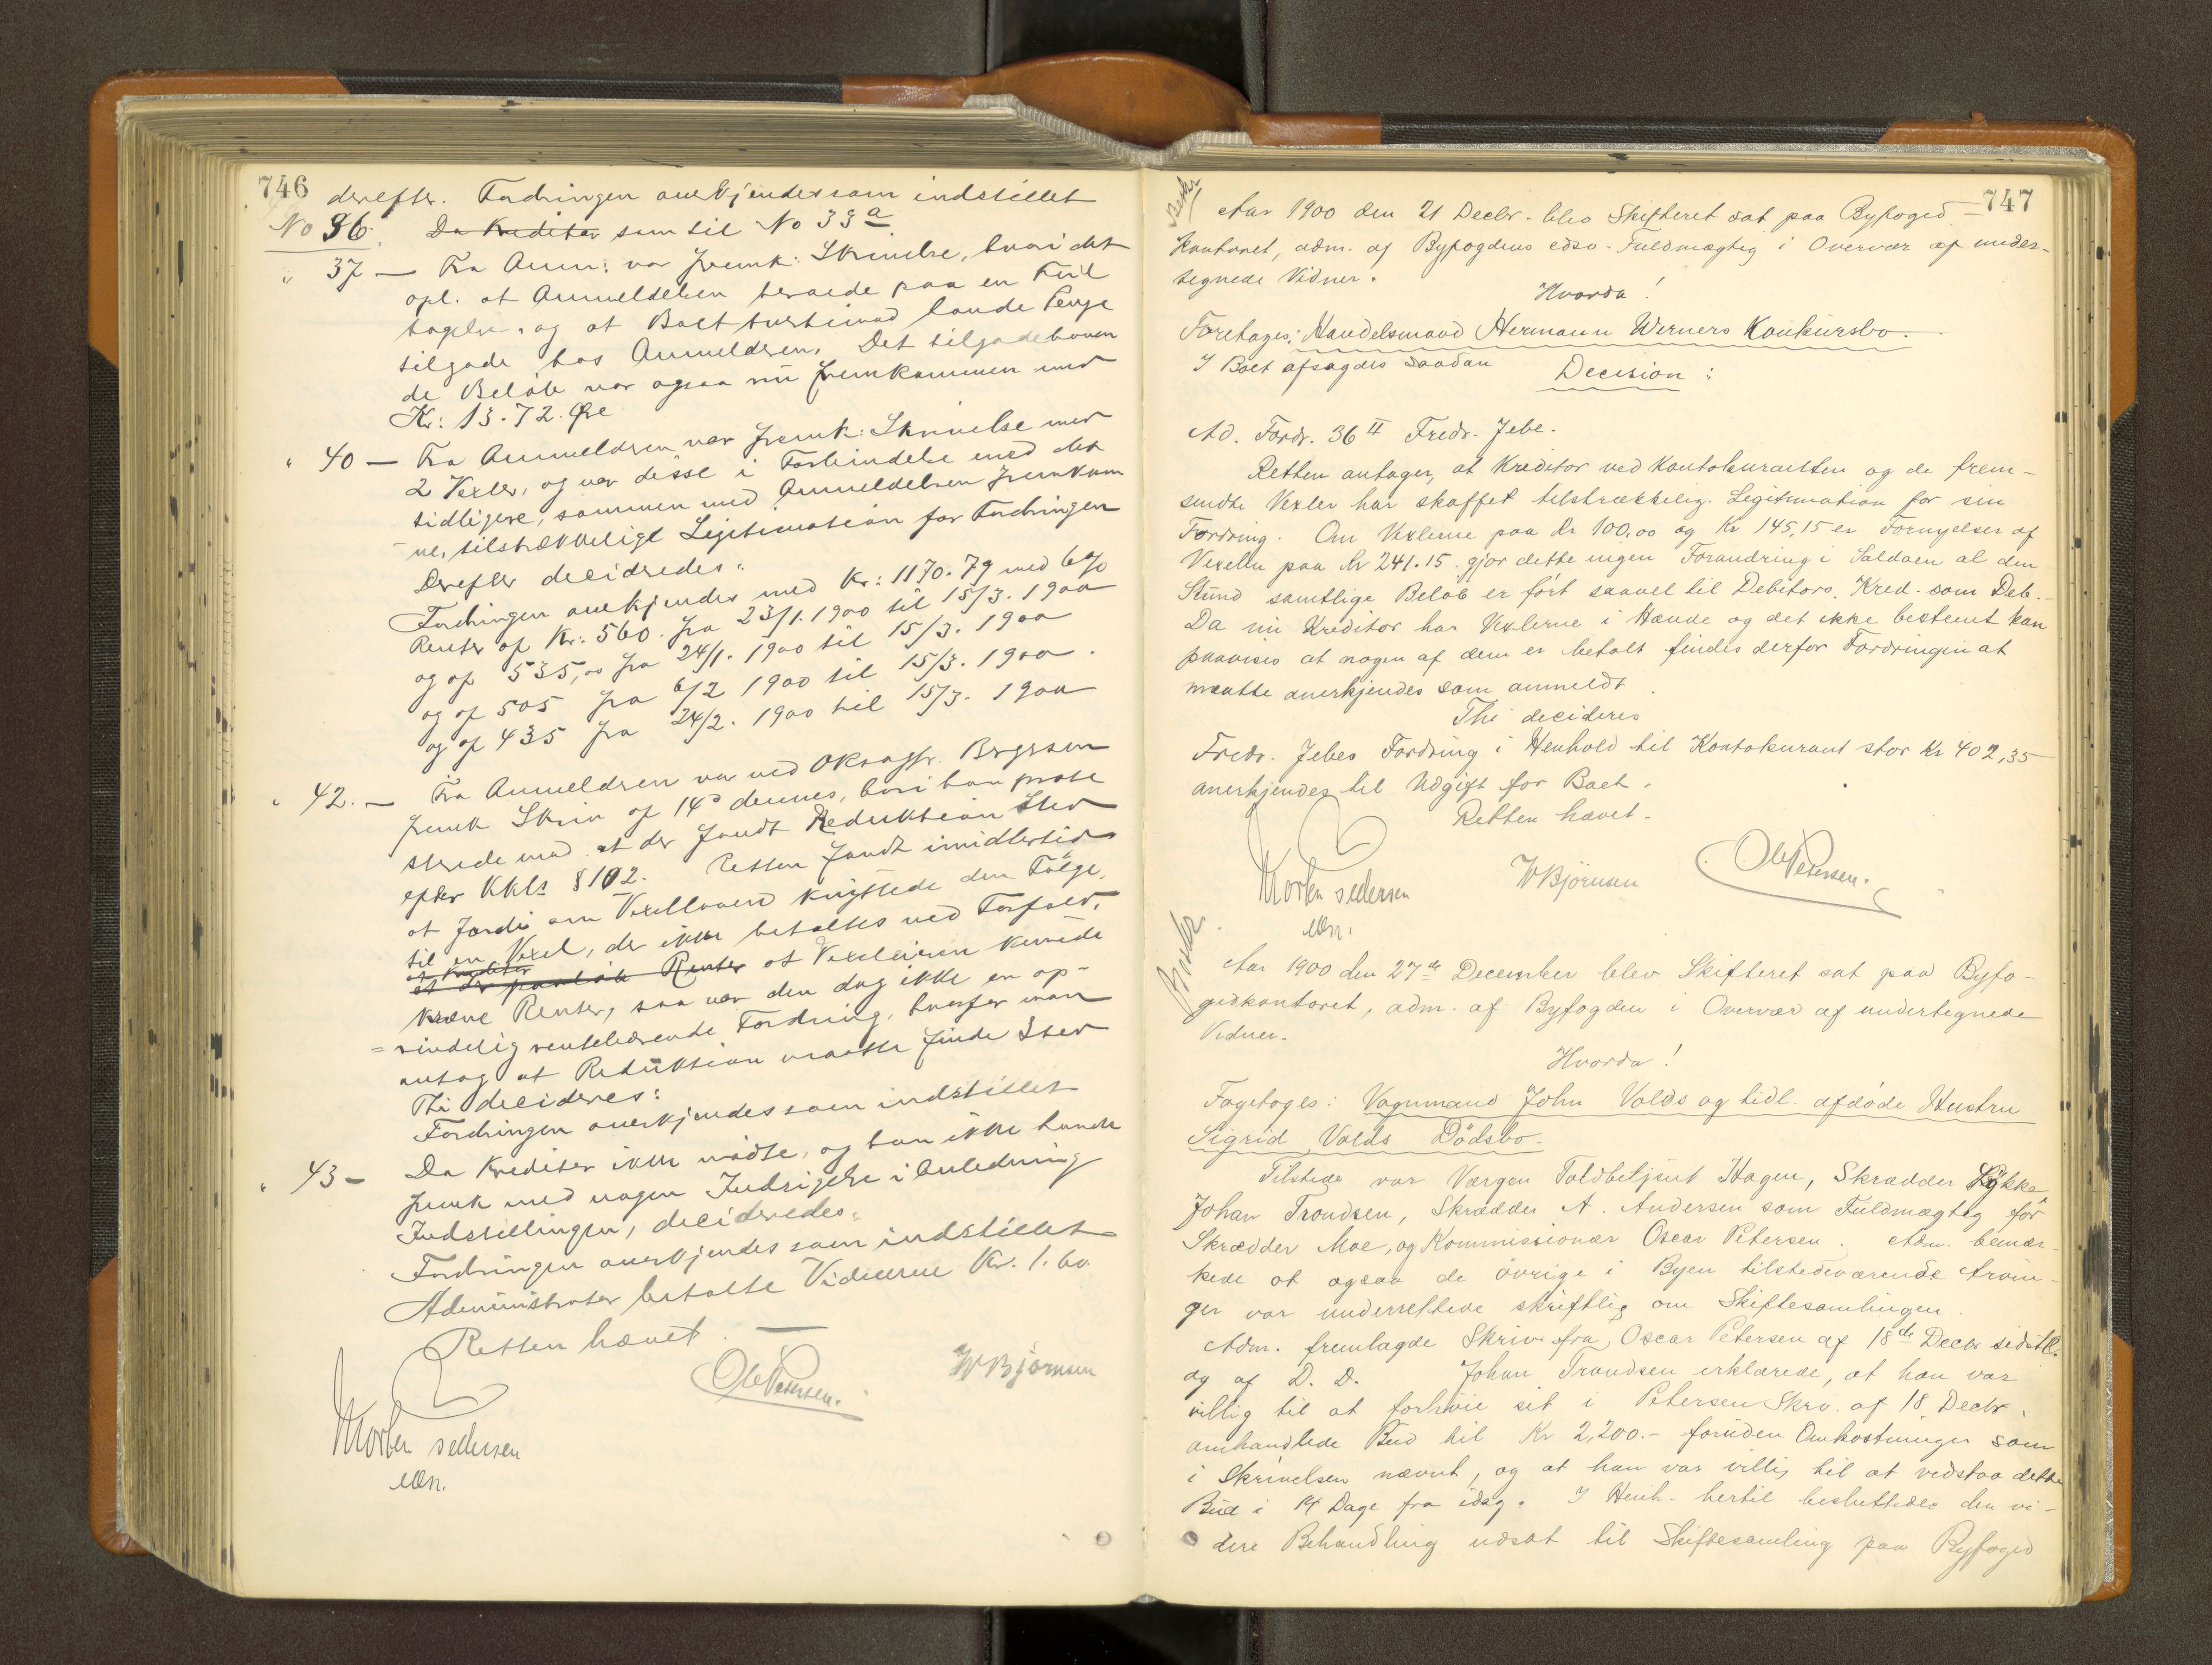 746
derefter. Fordringen anerkjendes som indstillet
No 36. Da Kreditor som til No 33a
" 37 — Fra Anm: var fremk: Skrivelse, hvori det
opl. at Anmeldelsen beroede paa en Feil
tagelse, og at Boet tvertimod havde Penge
tilgode hos Anmelderen. Det tilgodehaven
de Beløb var ogsaa nu fremkommen med
Kr: 13.72. Øre
" 40 — Fra Anmelderen var fremk: Skrivelse med
2 Vexler, og var disse i Forbindelse med det
tidligere, sammen med Anmeldelsen fremkom
ne, tilstrækkeligt Legitimation for Fordringen
Derefter decideredes:
Fordringen anerkjendes med Kr: 1170.79 med 6%
Renter af Kr: 560. fra 23/1. 1900 til 15/3. 1900
og af 535,00 fra 24/1. 1900 til 15/3. 1900
og af 505 fra 6/2 1900 til 15/3. 1900.
og af 435 fra 24/2. 1900 til 15/3. 1900
" 42. — Fra Anmelderen var ved Oksagfr. Bergesen
fremk Skriv af 14d dennes, hvori han prote
sterede mod at der fandt Reduktion Sted
efter KKls § 102. Retten fandt imidlertid
at fordi om Vexelloven knyttede den Følge,
til en Vexel, der ikke betaltes ved Forfald,
at Kreditor
at der paaløb Renter at Vexeleieren kunde
kræve Renter, saa var den dog ikke en op-
=rindelig rentebærende Fordring, hvorfor man
antog at Reduktion maatte finde Sted
Thi decideres:
Fordringen anerkjendes som indstillet
" 43 — Da Kreditor ikke mødte, og han ikke havde
fremk med nogen Indsigelse i Anledning
Indstillingen, decideredes:
Fordringen anerkjendes som indstillet
Administrator betalte Vidnerne Kr. 1.60.
Retten hævet. —
Morten Pedersen
Ole Petersen.
W Bjørnsen
Edsv.
747
Beskr
Aar 1900 den 21 Decbr. blev Skifteret sat paa Byfoged-
kontoret, adm. af Byfogdens edsv. Fuldmægtig i Overvær af under-
tegnede Vidner.
Hvorda!
Foretoges: Handelsmand Hermann Werners Konkursbo.
I Boet afsagdes saadan Decision:
Ad. Fordr. 36 II Fredr. Jebe.
Retten antager, at Kreditor ved Kontokuranten og de frem-
sendte Vexler har skaffet tilstrækkelig Legitimation for sin
Fordring. Om Vexlerne paa Kr 100,00 og Kr 145,15 er Fornyelser af
Vexelen paa Kr 241.15. gjør dette ingen Forandring i Saldoen al den
Stund samtlige Beløb er ført saavel til Debitors. Kred. som Deb.
Da nu Kreditor har Vexlerne i Hænde og det ikke bestemt kan
paavises at nogen af dem er betalt findes derfor Fordringen at
maatte anerkjendes som anmeldt.
Thi decideres
Fredr. Jebes Fordring i Henhold til Kontokurant stor Kr 402,35
anerkjendes til Udgift for Boet.
Retten hævet.
Morten Pedersen
W Bjørnsen
Ole Petersen.
Edsv.
Beskr
Aar 1900 den 27de December blev Skifteret sat paa Byfo-
gedkontoret, adm. af Byfogden i Overvær af undertegnede
Vidner.
Hvorda!
Fogetoges: Vognmand John Volds og tidl. afdøde Hustru
Sigrid Volds Dødsbo.
Tilstede var Vergen Toldbetjent Hagen, Skrædder Løkke,
Johan Trondsen, Skrædder A. Andersen som Fuldmægtig for
Skrædder Moe, og Kommissionær Oscar Petersen. Adm. bemær-
kede at ogsaa de øvrige i Byen tilstedeværende Arvin-
ger var underrettede skriftlig om Skiftesamlingen.
Adm. fremlagde Skriv. fra Oscar Petersen af 18de Decbr sidstl.
og af D. D. Johan Trondsen erklærede, at han var
villig til at forhøie sit i Petersen Skrv. af 18 Decbr.
omhandlede Bud til Kr 2,200.- foruden Omkostninger som
i Skrivelsen nævnt, og at han var villig til at vedstaa dette
Bud i 14 Dage fra idag. I Henh. hertil besluttedes den vi-
dere Behandling udsat til Skiftesamling paa Byfoged